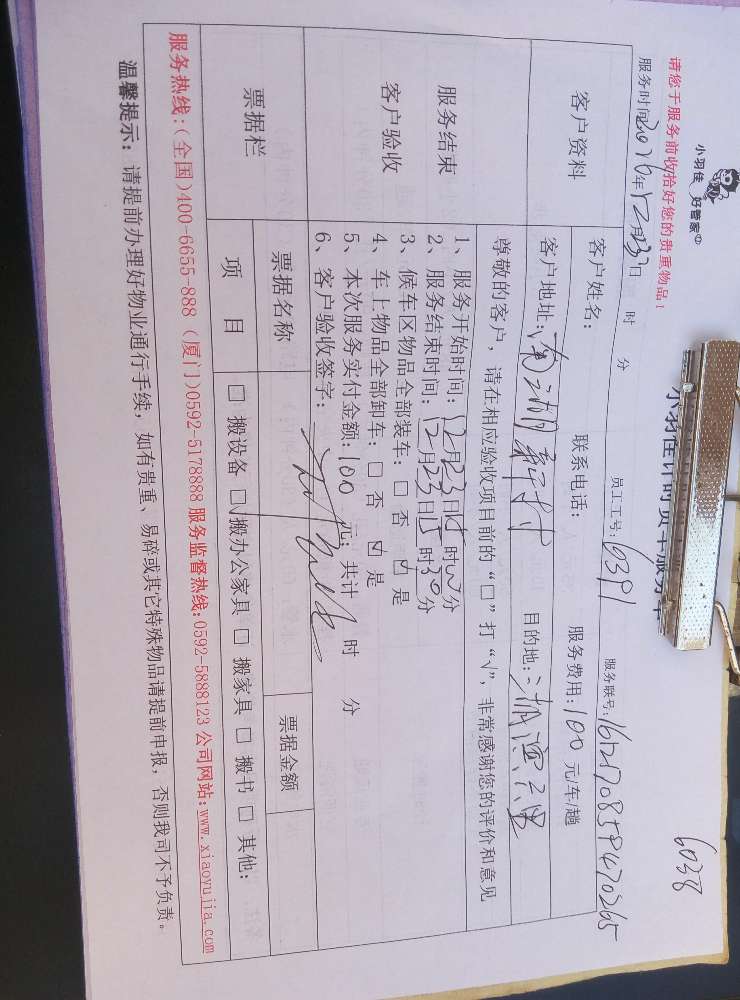 小羽佳 好管家
小羽佳计时货车服务单
6038
请您于服务前收拾好您的贵重物品!
服务时间2016年12月23日 时 分 员工工号:6391 服务联号:1612170859470265
客户资料
客户姓名: 联系电话: 服务费用:100 元/车/趟
客户地址: 目的地:
尊敬的客户,请在相应验收项目前的“□”打“√”,非常感谢您的评价和意见
服务结束
客户验收
1、服务开始时间:12月23日15时00分
2、服务结束时间:12月23日15时30分
3、候车区物品全部装车:□ 否 ☑ 是
4、车上物品全部卸车:□ 否 ☑ 是
5、本次服务实付金额:100 元;共计 时 分
6、客户验收签字:
票据栏
票据名称 票据金额
项 目 □ 搬设备 □ 搬办公家具 □ 搬家具 □ 搬书 □ 其他:
服务热线:(全国)400-6655-888 (厦门)0592-5178888 服务监督热线:0592-5888123 公司网站:www.xiaoyujia.com
温馨提示: 请提前办理好物业通行手续,如有贵重、易碎或其它特殊物品请提前申报,否则我司不予负责。